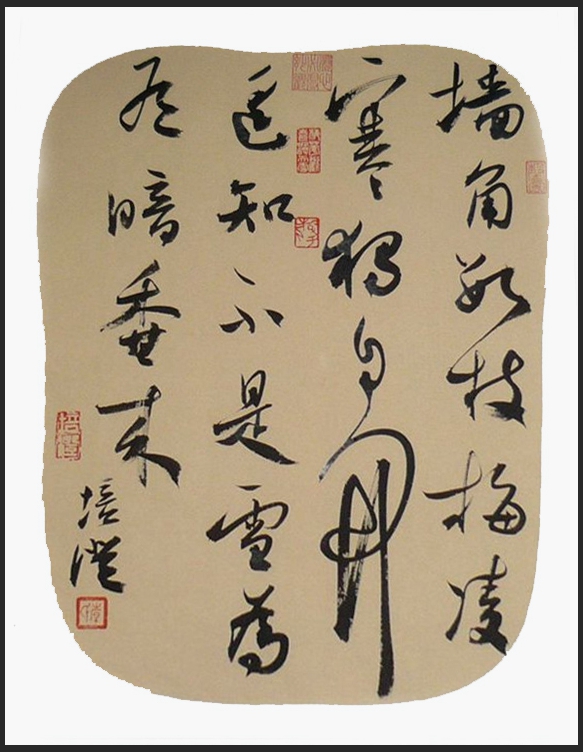 墙角数枝梅凌
寒獨自開
遥知不是雪為
有暗香来
培